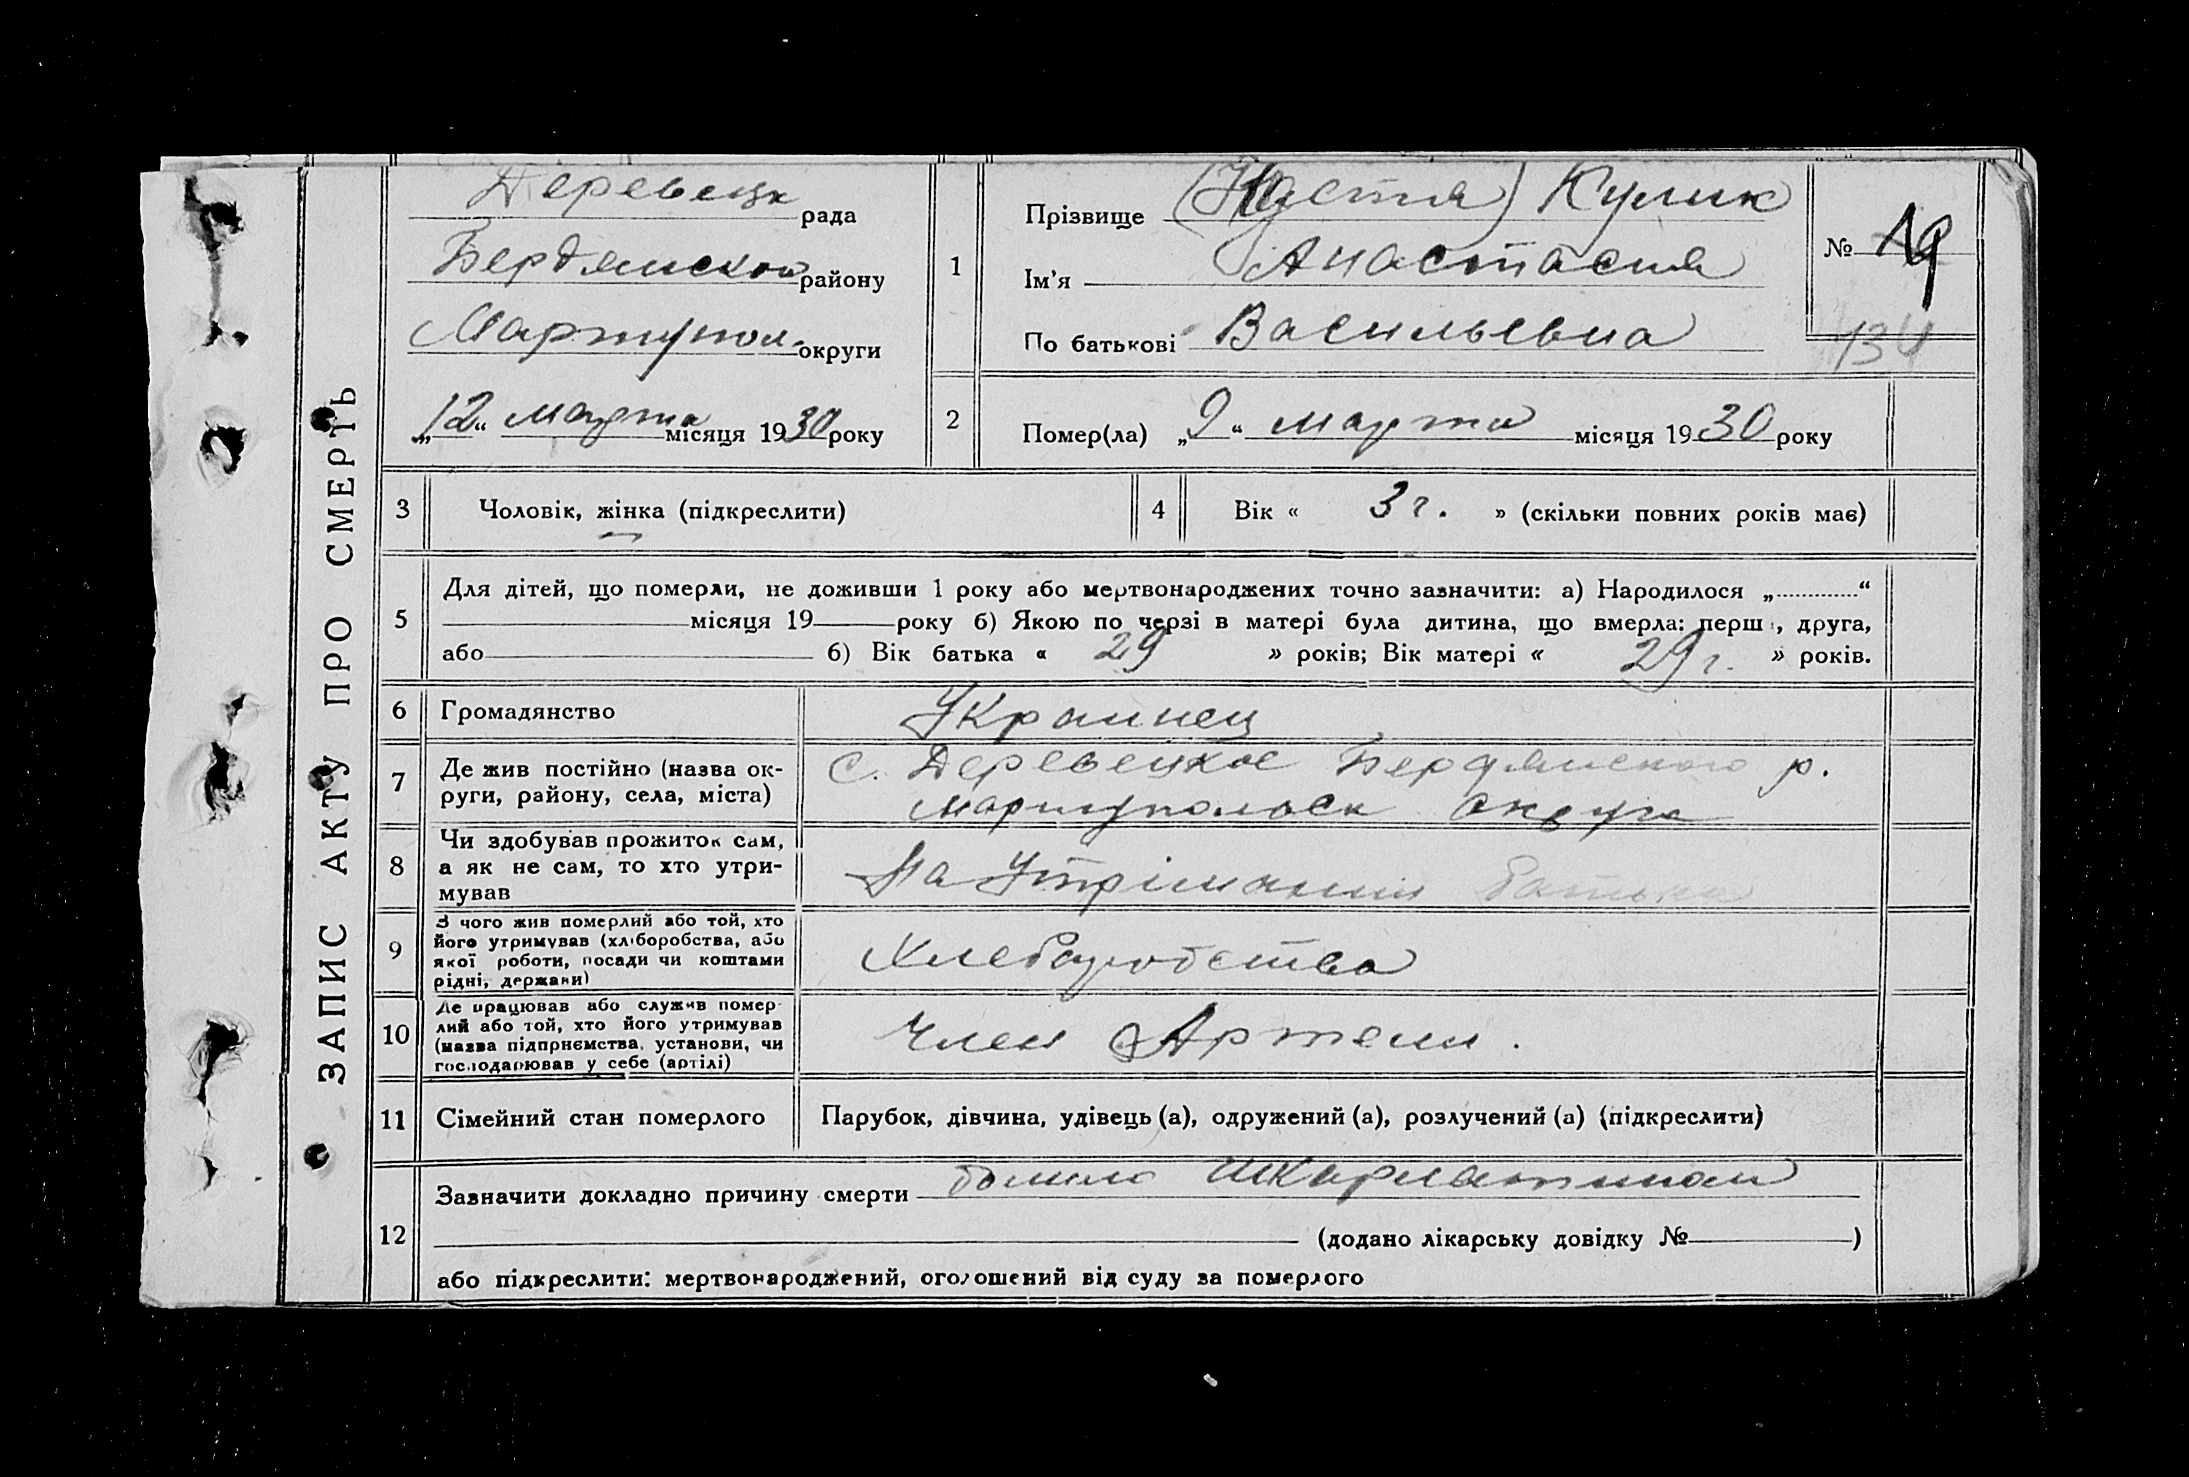 ЗАПИС АКТУ ПРО СМЕРТЬ
Деревецк рада
Бердянского району
Мариупол. округи
„12“ марта місяця 1930 року
1
Прізвище (Настя) Кулик
Ім'я Анастасия
По батькові Васильевна
№ 19
134
2
Помер(ла) „9“ марта місяця 1930 року
3 Чоловік, жінка (підкреслити)
4 Вік « 3 г. » (скільки повних років має)
5 Для дітей, що померли, не доживши 1 року або мертвонароджених точно зазначити: а) Народилося „.............“
місяця 19 року б) Якою по черзі в матері була дитина, що вмерла: перша, друга,
або б) Вік батька « 29 » років; Вік матері « 29 г. » років.
6 Громадянство Украинец
7 Де жив постійно (назва ок-
руги, району, села, міста)
с. Деревецкое Бердянского р.
Мариупольск округа
8 Чи здобував прожиток сам,
а як не сам, то хто утри-
мував
На Утрімании батька
9 З чого жив померлий або той, хто
його утримував (хліборобства, або
якої роботи, посади чи коштами
рідні, держави)
Хлебаробства
10 Де працював або служив помер-
лий або той, хто його утримував
(назва підприємства, установи, чи
господарював у себе (артілі)
Член Артели.
11 Сімейний стан померлого Парубок, дівчина, удівець (а), одружений (а), розлучений (а) (підкреслити)
12 Зазначити докладно причину смерти болила шкарлатиной
(додано лікарську довідку № )
або підкреслити: мертвонароджений, оголошений від суду за померлого